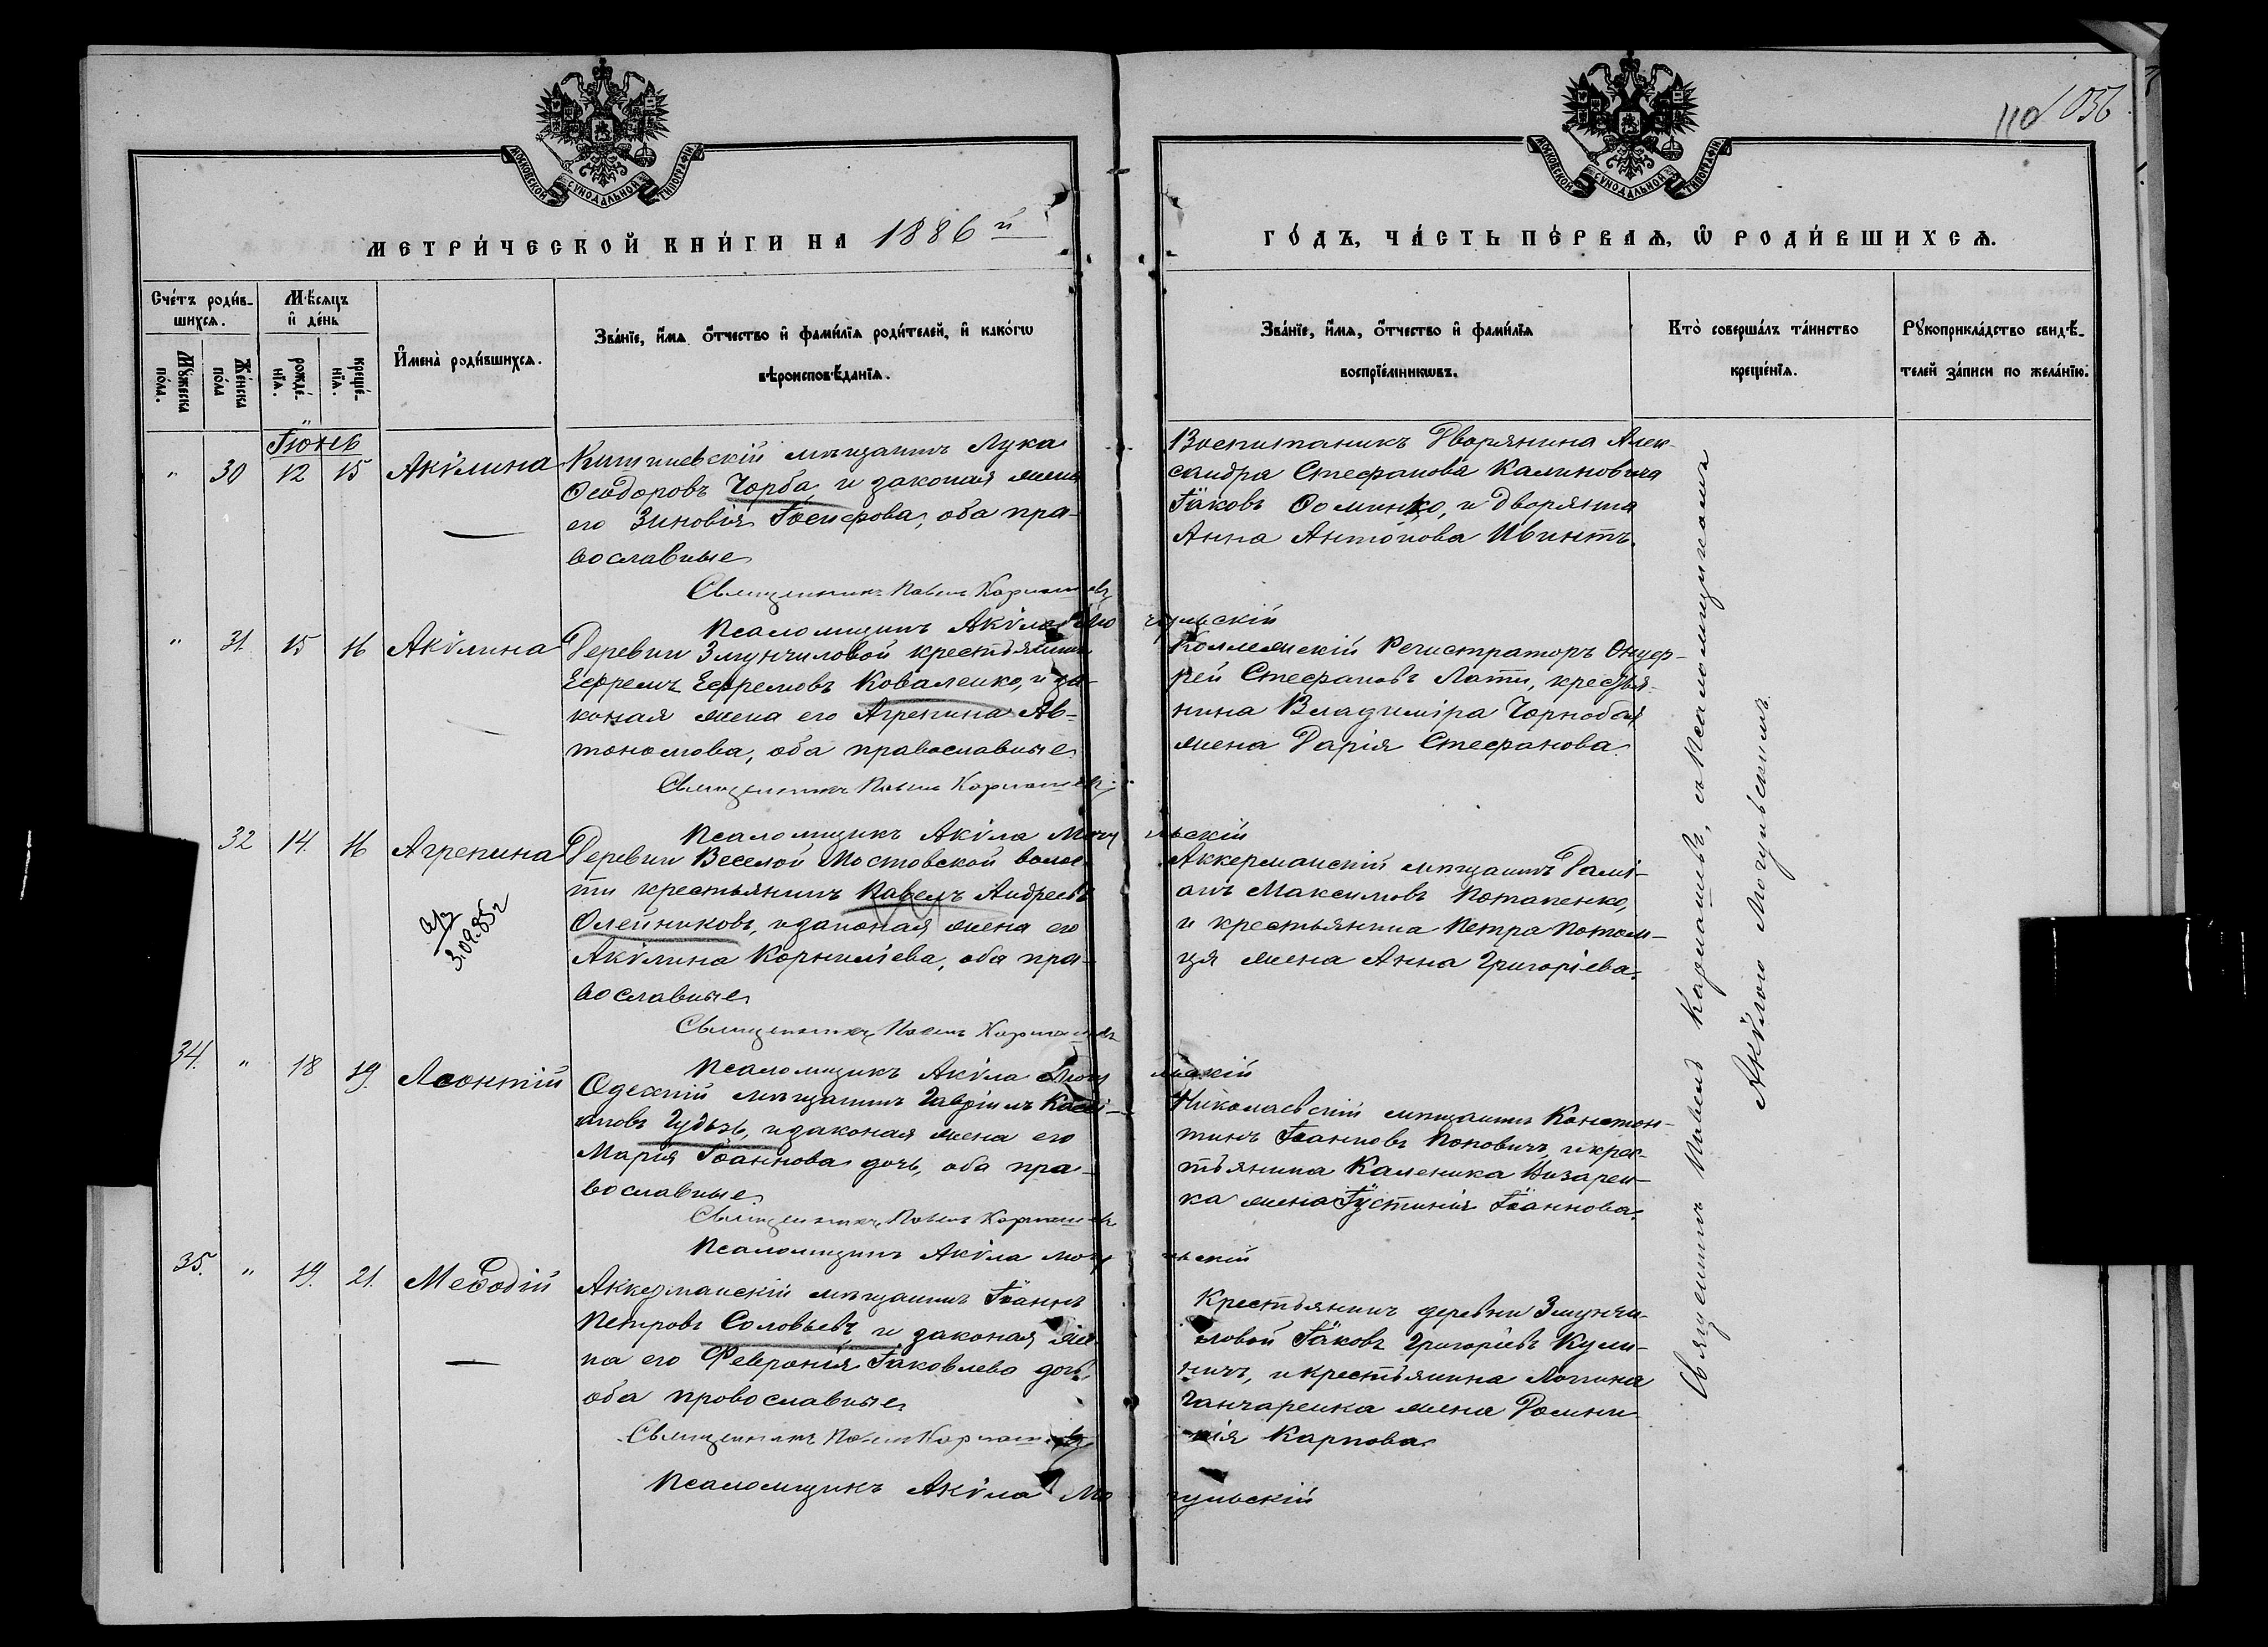 110 1056
МОСКОВСКОЙ СУНОДАЛЬНОЙ ТИПОГРАФІИ
МОСКОВСКОЙ СУНОДАЛЬНОЙ ТИПОГРАФІИ
МЕТРИ́ЧЕСКОЙ КНИ́ГИ НА 1886й
ГО́ДЪ, ЧА́СТЬ ПЕ́РВАѦ, Ѡ РОДИ́ВШИХСѦ.
Сче́тъ роди́в-
шихсѧ.
Мꙋ́жеска по́ла.
Же́нска по́ла
Мѣ́сѧцъ
и҆ де́нь
рожде́-
нїѧ.
креще́-
нїѧ.
И҆мена̀ роди́вшихсѧ.
Зва́нїе, и҆́мѧ ѻ҆́тчество и҆ фами́лїѧ роди́телей, и҆ како́гѡ
вѣроисповѣ́данїѧ.
Зва́нїе, и҆́мѧ, ѻ҆́тчество и҆ фами́лїѧ
воспрїе́мникѡвъ.
Кто̀ соверша́лъ та́инство
креще́нїѧ.
Рꙋкоприкла́дство свидѣ́-
телей за́писи по жела́нїю.
Іюнь
" 30 12 15 Акѵлина
Кишиневскій мѣщанинъ Лука
Ѳеодоровъ Чорба, и законая жена
его Зиновія Іосифова, оба пра-
вославные
Священникъ Павелъ Кармашевъ
Псаломщикъ Акѵла Могульскій
Воспитаникъ Дворянина Алек-
сандра Стефанова Калиновича
Іаковъ Ѳоминко, и дворянка
Анна Антонова Ивинтъ.
" 31 15 16 Акѵлина
Деревни Змунчиловой крестьянинъ
Ефремъ Ефремовъ Коваленко, и за-
коная жена его Агрепина Ав-
тономова, оба православные
Священникъ Павелъ Кармашевъ
Псаломщикъ Акѵла Могульскій
Коллежскій Регистраторъ
Стефановъ Латти, крестья-
нина Владиміра Чорнобая
жена Дарія Стефанова.
32 14 16 Агрепина
3.09.85г
Деревни Веселой Мостовской волос-
ти крестьянинъ Павелъ Андреевъ
Олейниковъ, и законая жена его
Акѵлина Корниліева, оба пра-
вославные
Священникъ Павелъ Кармашевъ
Псаломщикъ Акѵла Могульскій
Аккерманскій мѣщанинъ Дамі-
анъ Максимовъ Потапенко,
и крестьянина Петра Потом-
ця жена Анна Григоріева.
34. " 18 19. Леонтій
Одескій мѣщанинъ Гавріилъ Касі-
яновъ Гудзь, и законая жена его
Марія Іоаннова дочь, оба пра-
вославные
Священникъ Павелъ Кармашевъ
Псаломщикъ Акѵла Могульскій
Николаевскій мѣщанинъ Констан-
тинъ Іоанновъ Поповичъ, и крес-
тьянина Каленика Назарен-
ка жена Іустинія Іоаннова.
35. " 19. 21. Меѳодій
Аккерманскій мѣщанинъ Іоаннъ
Петровъ Соловьевъ, и законая же-
на его Феѵронія Іаковлева дочь,
оба провославные
Священникъ Павелъ Кармашевъ
Псаломщикъ Акѵла Могульскій
Крестьянинъ деревни Змунчи-
ловой Іаковъ Григоріевъ Кули-
ничъ, и крестьянина Логгина
Ганчаренка жена Домни-
кія Карпова
Священникъ Павелъ Кармашевъ, съ Псаломщикомъ
Акѵлою Могульскимъ.